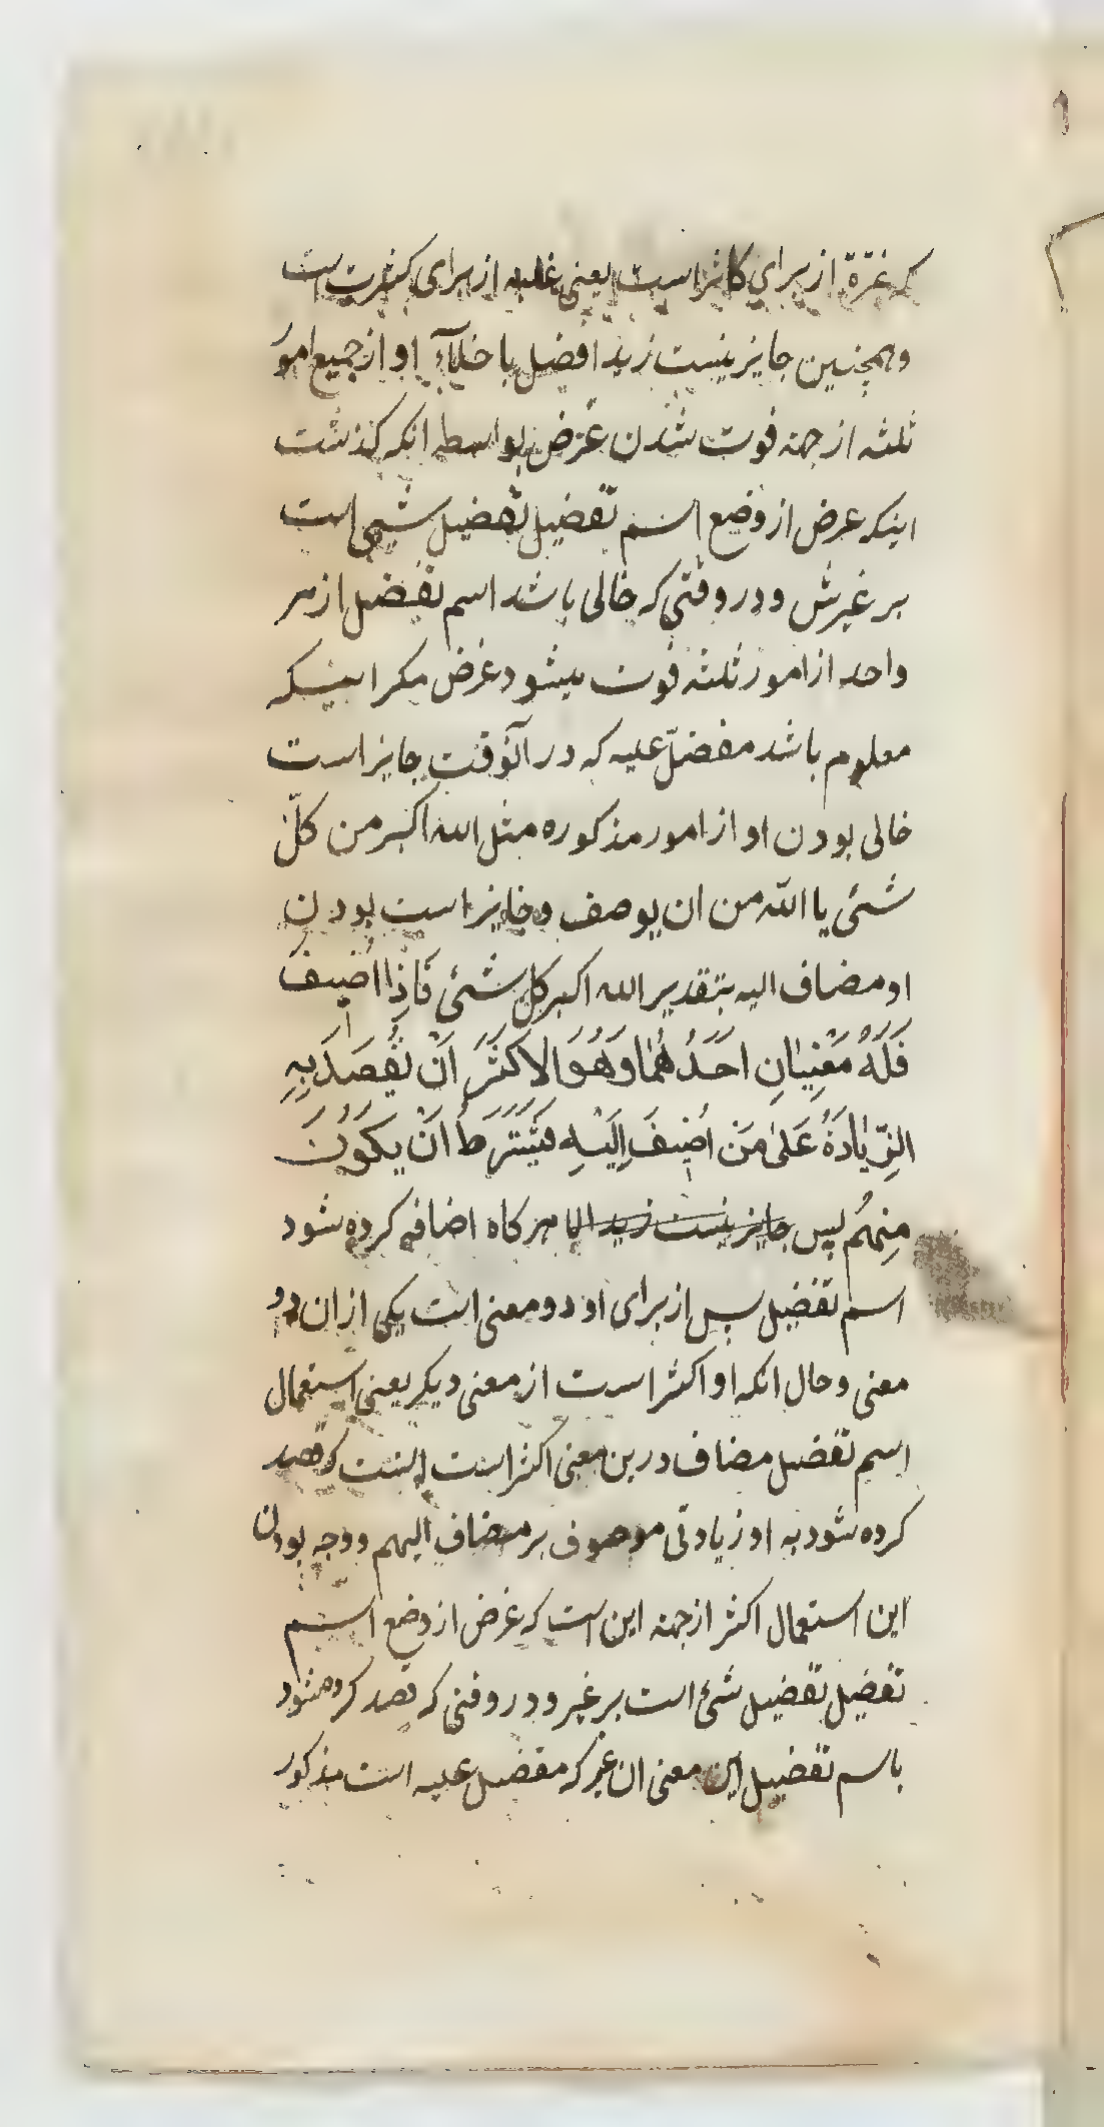 که غرّة از برای کاثر است یعنی غلبه از برای کثرت است
وهمچنین جایز نیست زید افضل با خلاء او از جمیع امور
ثلثه از جهة فوت شدن غرض بواسطه انکه کذشت
اینکه عرض از وضع اسم تفضیل تفضیل شیئی است
بر غیرش و در وقتی که خالی باشد اسم تفضیل از هر
واحد از امور ثلثه فوت میشود غرض مکر اینکه
معلوم باشد مفضّل علیه که در آنوقت جایز است
خالی بودن او از امور مذکوره مثل الله اکبر من کلّ
شئی یا الله من ان یوصف وجایز است بودن
او مضاف الیه بتقدیر الله اکبر کل شئی فَاذِا اُضیفَ
فَلَهُ مَعْنِیٰانِ اَحَدُهُمٰا وَهُوَ الاَکثَرَ اَنْ یُقصَدَ بِهِ
الزِّیٰادَةُ عَلیٰ مَنْ اُضیفَ اِلَیْهِ فیُشْتَرَطُ اَنْ یکَوُنَ
مِنهُم پس جایز نیست زید الا هر کاه اضافه کرده شود
اسم تفضیل پس از برای او دو معنی است یکی از ان دو
معنی وحال انکه او اکثر است از معنی دیکر یعنی استعمال
اسم تفضیل مضاف درین معنی اکثر است اینست که قصد
کرده شود به او زیادتی موصوف بر مضاف الیهم ووجه بودن
این استعمال اکثر از جهة این است که غرض از وضع اسم
تفضیل تفضیل شئ است بر غیر و در وقتی که قصد کرده شود
باسم تفضیل این معنی ان غیر که مفضل علیه است مذکور